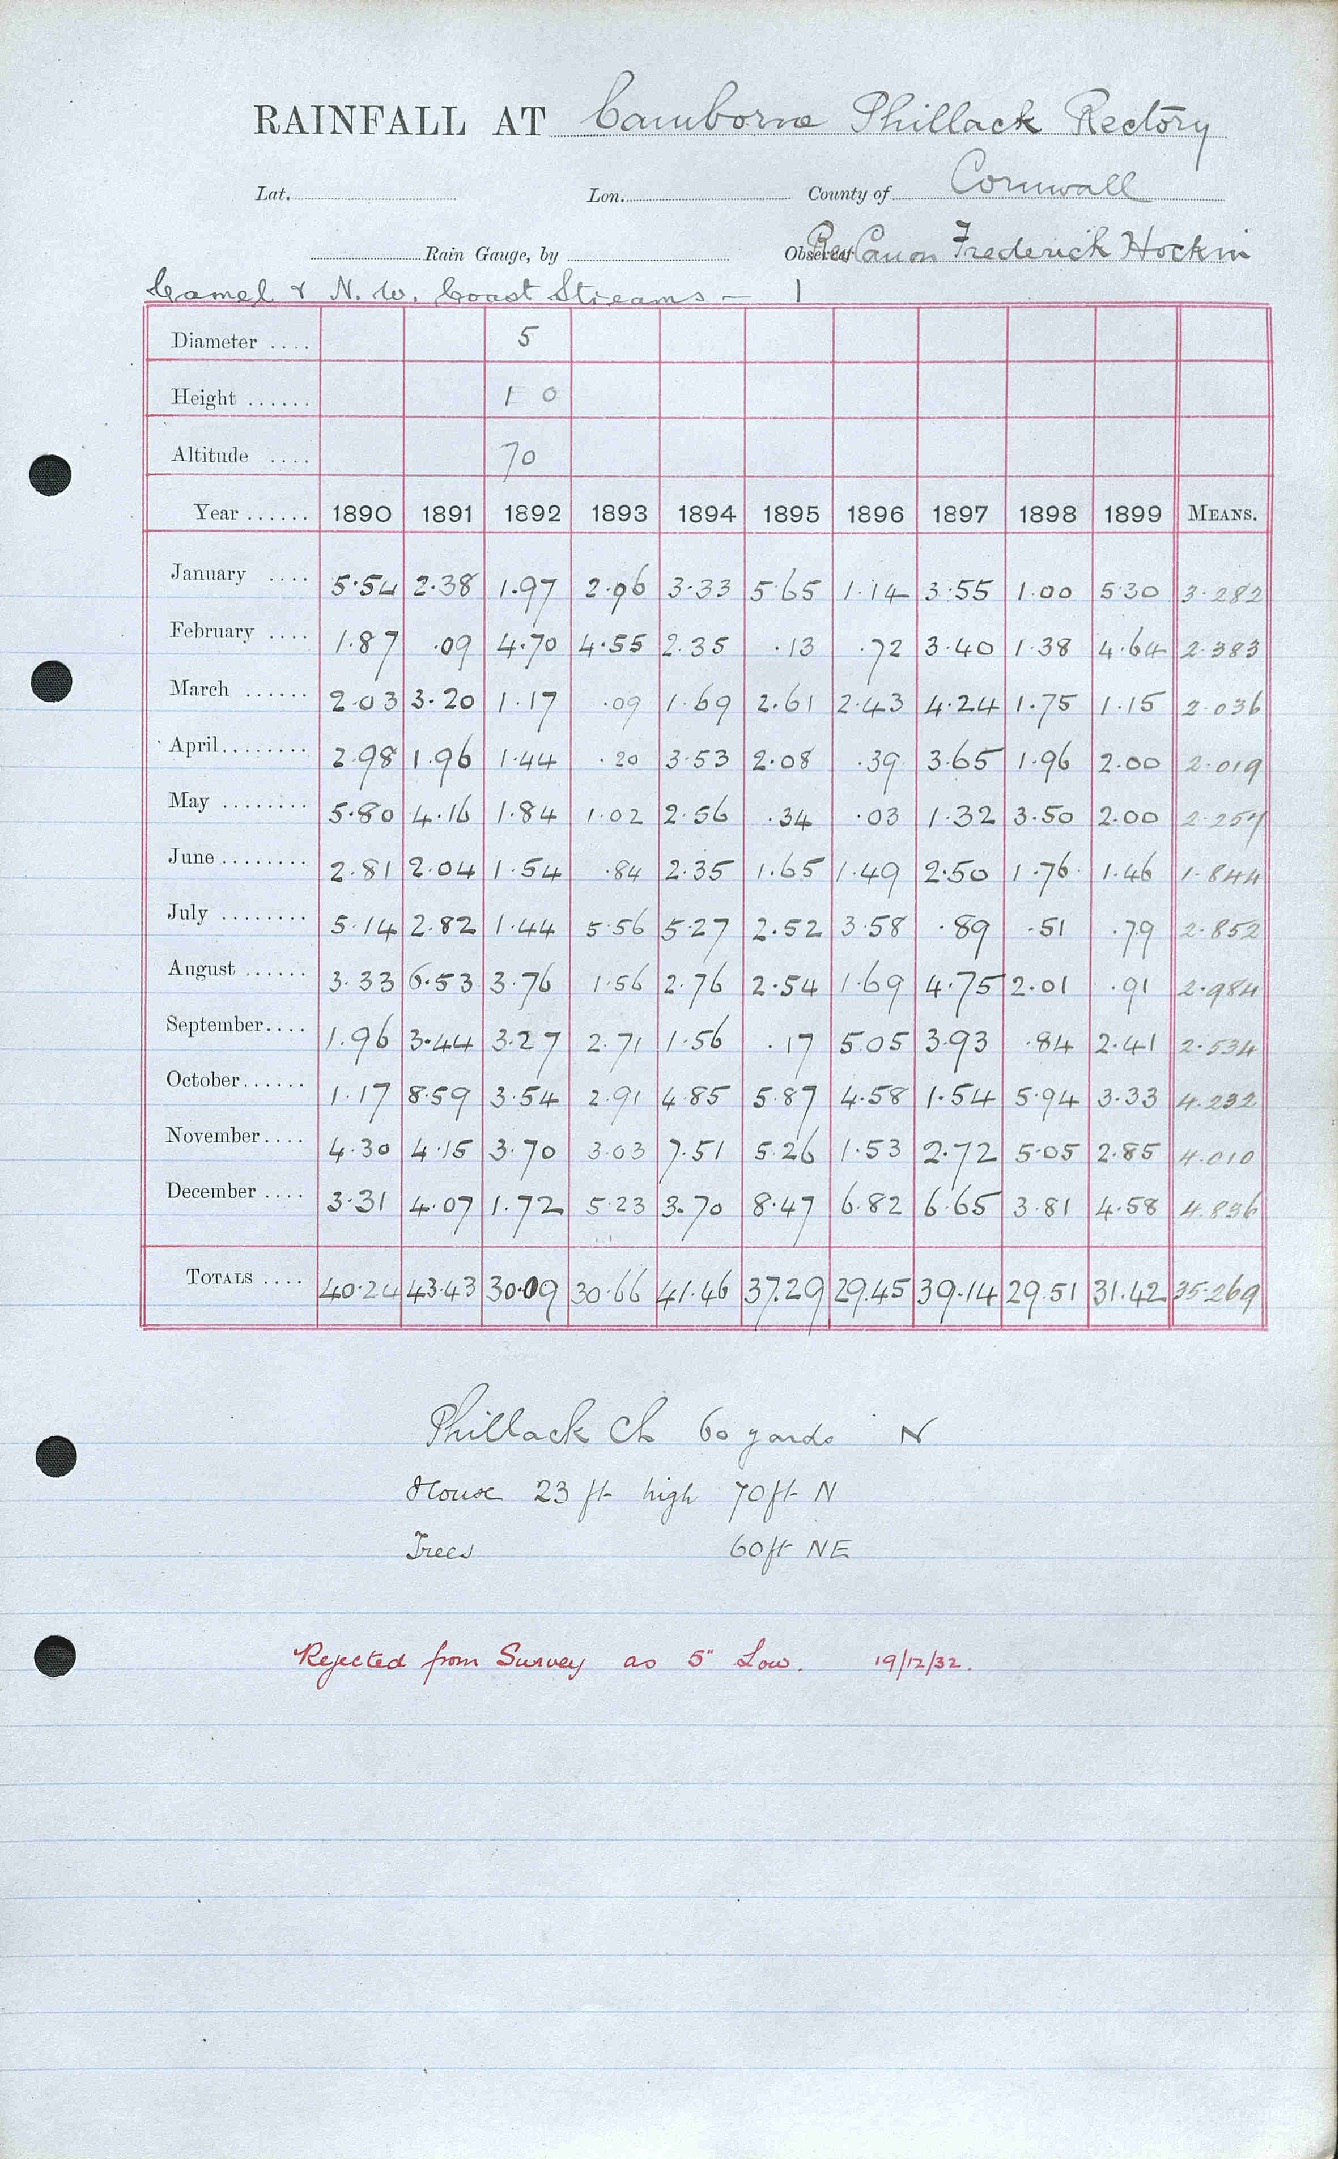 RAINFALL AT Camborne Phillack Rectory
Lat. Lon. County of Cornwall
Rain Gauge, by Observer Rev Canon Frederick Hockin
Camel & N.W. Coast Streams — 1
Diameter .... 5
Height ...... 1 0
Altitude .... 70
Year ...... 1890 1891 1892 1893 1894 1895 1896 1897 1898 1899 MEANS.
January .... 5.54 2.38 1.97 2.96 3.33 5.65 1.14 3.55 1.00 5.30 3.282
February .... 1.87 .09 4.70 4.55 2.35 .13 .72 3.40 1.38 4.64 2.383
March ...... 2.03 3.20 1.17 .09 1.69 2.61 2.43 4.24 1.75 1.15 2.036
April........ 2.98 1.96 1.44 .20 3.53 2.08 .39 3.65 1.96 2.00 2.019
May ........ 5.80 4.16 1.84 1.02 2.56 .34 .03 1.32 3.50 2.00 2.257
June ........ 2.81 2.04 1.54 .84 2.35 1.65 1.49 2.50 1.76 1.46 1.844
July ........ 5.14 2.82 1.44 5.56 5.27 2.52 3.58 .89 .51 .79 2.852
August ...... 3.33 6.53 3.76 1.56 2.76 2.54 1.69 4.75 2.01 .91 2.984
September.... 1.96 3.44 3.27 2.71 1.56 .17 5.05 3.93 .84 2.41 2.534
October...... 1.17 8.59 3.54 2.91 4.85 5.87 4.58 1.54 5.94 3.33 4.232
November.... 4.30 4.15 3.70 3.03 7.51 5.26 1.53 2.72 5.05 2.85 4.010
December .... 3.31 4.07 1.72 5.23 3.70 8.47 6.82 6.65 3.81 4.58 4.836
TOTALS .... 40.24 43.43 30.09 30.66 41.46 37.29 29.45 39.14 29.51 31.42 35.269
Phillack Ch 60 yards N
House 23 ft high 70ft N
Trees 60ft NE
Rejected from Survey as 5" Low. 19/12/32.